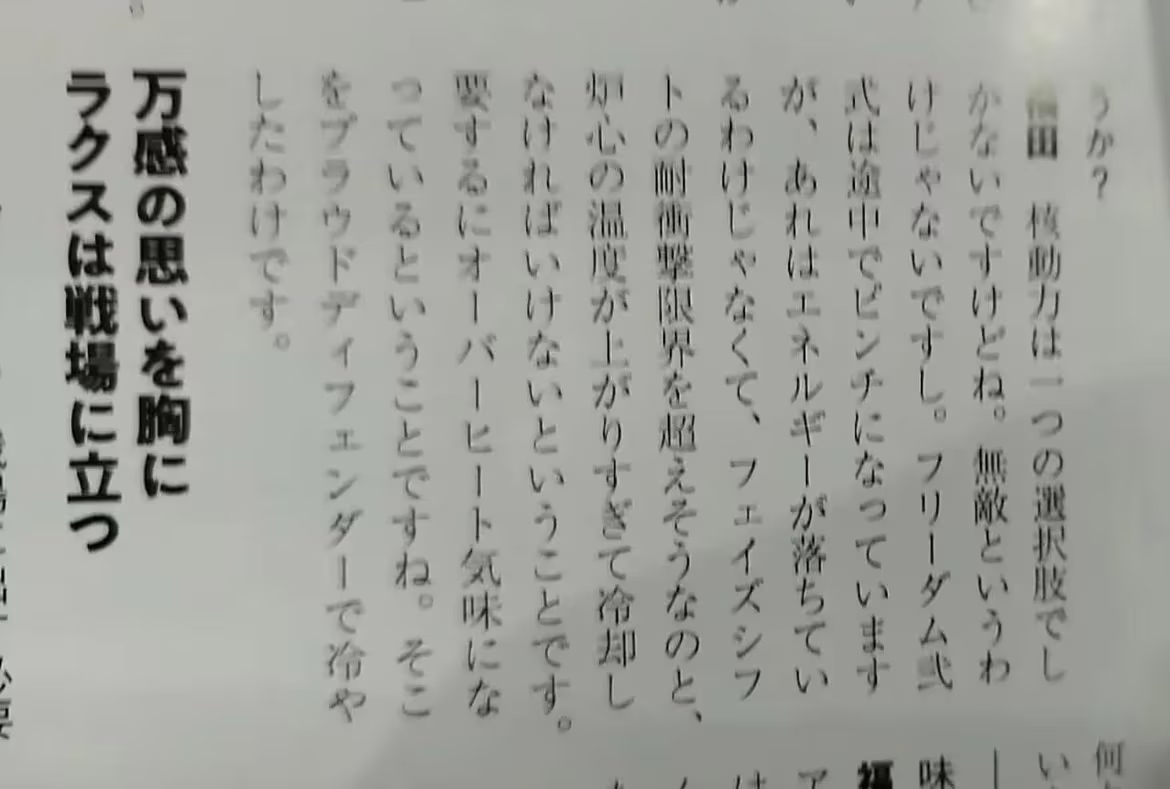 うか？
福田　核動力は一つの選択肢でし
かないですけどね。無敵というわ
けじゃないですし。フリーダム弐
式は途中でピンチになっています
が、あれはエネルギーが落ちてい
るわけじゃなくて、フェイズシフ
トの耐衝撃限界を超えそうなのと、
炉心の温度が上がりすぎて冷却し
なければいけないということです。
要するにオーバーヒート気味にな
っているということですね。そこ
をプラウドディフェンダーで冷や
したわけです。
万感の思いを胸に
ラクスは戦場に立つ
何
い
味
福
ア
は